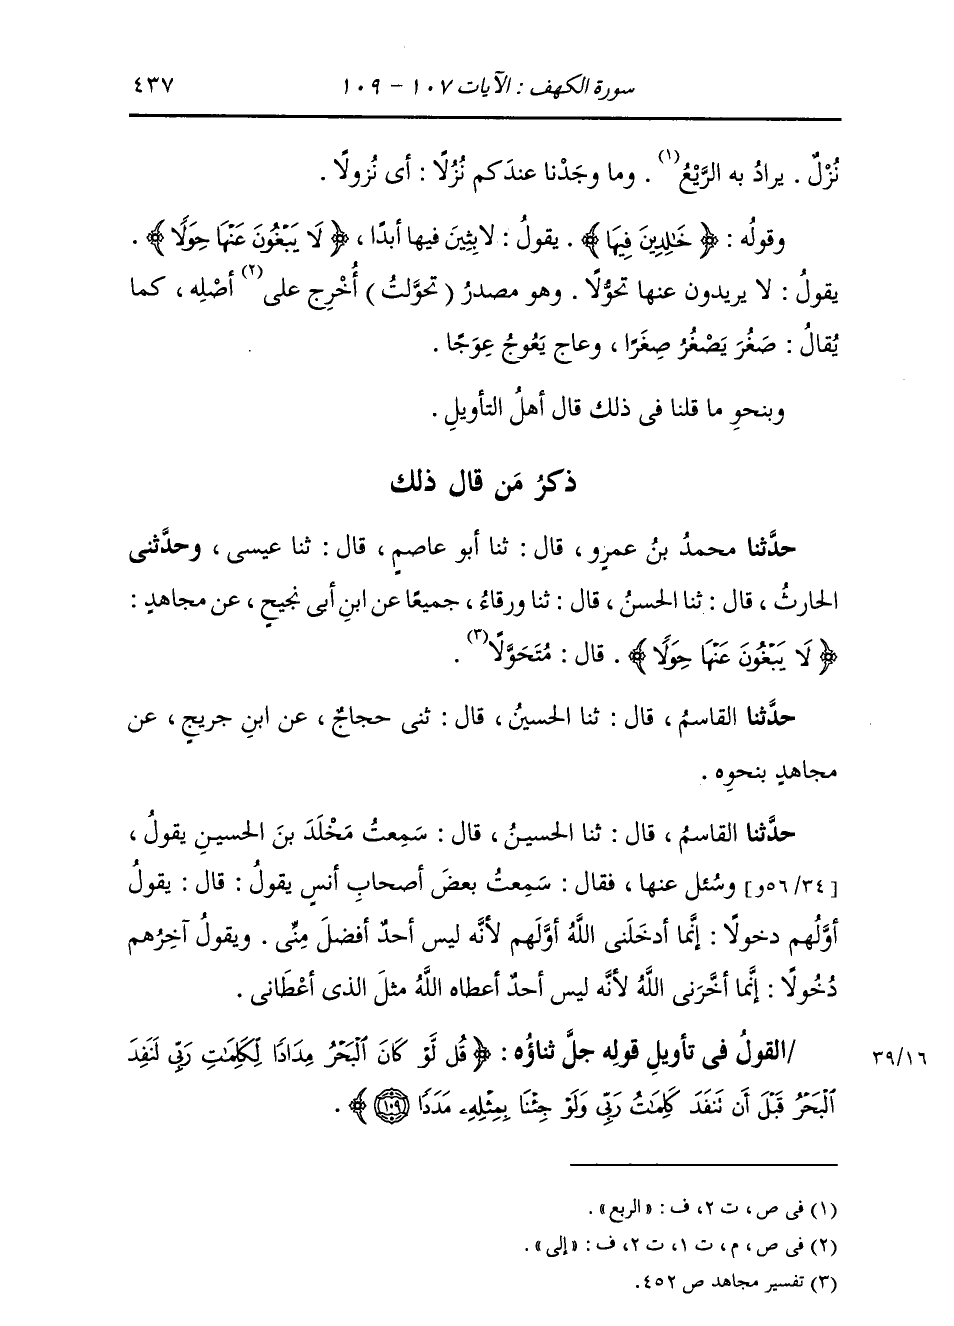 سورة الكهف : الآيات ١٠٧ - ١٠٩ ٤٣٧
نُزْلٌ . يرادُ به الرَّيْعُ(١) . وما وجَدْنا عندَكم نُزُلًا : أى نُزولًا .
وقولُه : ﴿ خَٰلِدِينَ فِيهَا ﴾ . يقولُ : لابِثِينَ فيها أبدًا ، ﴿ لَا يَبْغُونَ عَنْهَا حِوَلًا ﴾ .
يقولُ : لا يريدون عنها تحوُّلًا . وهو مصدرُ ( تحوَّلتُ ) أُخْرِج على(٢) أصْلِه ، كما
يُقالُ : صَغُرَ يَصْغُرُ صِغَرًا ، وعاج يَعُوجُ عِوَجًا .
وبنحوِ ما قلنا فى ذلك قال أهلُ التأويلِ .
ذكرُ مَن قال ذلك
حدَّثنا محمدُ بنُ عمرٍو ، قال : ثنا أبو عاصمٍ ، قال : ثنا عيسى ، وحدَّثنى
الحارثُ ، قال : ثنا الحسنُ ، قال : ثنا ورقاءُ ، جميعًا عن ابنِ أبى نجيحٍ ، عن مجاهدٍ :
﴿ لَا يَبْغُونَ عَنْهَا حِوَلًا ﴾ . قال : مُتَحَوَّلًا(٣) .
حدَّثنا القاسمُ ، قال : ثنا الحسينُ ، قال : ثنى حجاجٌ ، عن ابنِ جريجٍ ، عن
مجاهدٍ بنحوِه .
حدَّثنا القاسمُ ، قال : ثنا الحسينُ ، قال : سَمِعتُ مَخْلَدَ بنَ الحسينِ يقولُ ،
[٥٦/٣٤و] وسُئل عنها ، فقال : سَمِعتُ بعضَ أصحابِ أنسٍ يقولُ : قال : يقولُ
أوَّلُهم دخولًا : إنَّما أدخَلَنى اللَّهُ أوَّلَهم لأنَّه ليس أحدٌ أفضلَ مِنِّى . ويقولُ آخِرُهم
دُخُولًا : إنَّما أخَّرَنى اللَّهُ لأنَّه ليس أحدٌ أعطاه اللَّهُ مثلَ الذى أعْطَانى .
/القولُ فى تأويلِ قولِه جلَّ ثناؤُه : ﴿ قُل لَّوْ كَانَ ٱلْبَحْرُ مِدَادًا لِّكَلِمَٰتِ رَبِّى لَنَفِدَ ٣٩/١٦
ٱلْبَحْرُ قَبْلَ أَن نَنفَدَ كَلِمَٰتُ رَبِّى وَلَوْ جِئْنَا بِمِثْلِهِۦ مَدَدًا ١٠٩ ﴾ .
(١) فى ص ، ت ٢، ف : « الربع » .
(٢) فى ص ، م ، ت ١، ت ٢، ف : « إلى » .
(٣) تفسير مجاهد ص ٤٥٢.